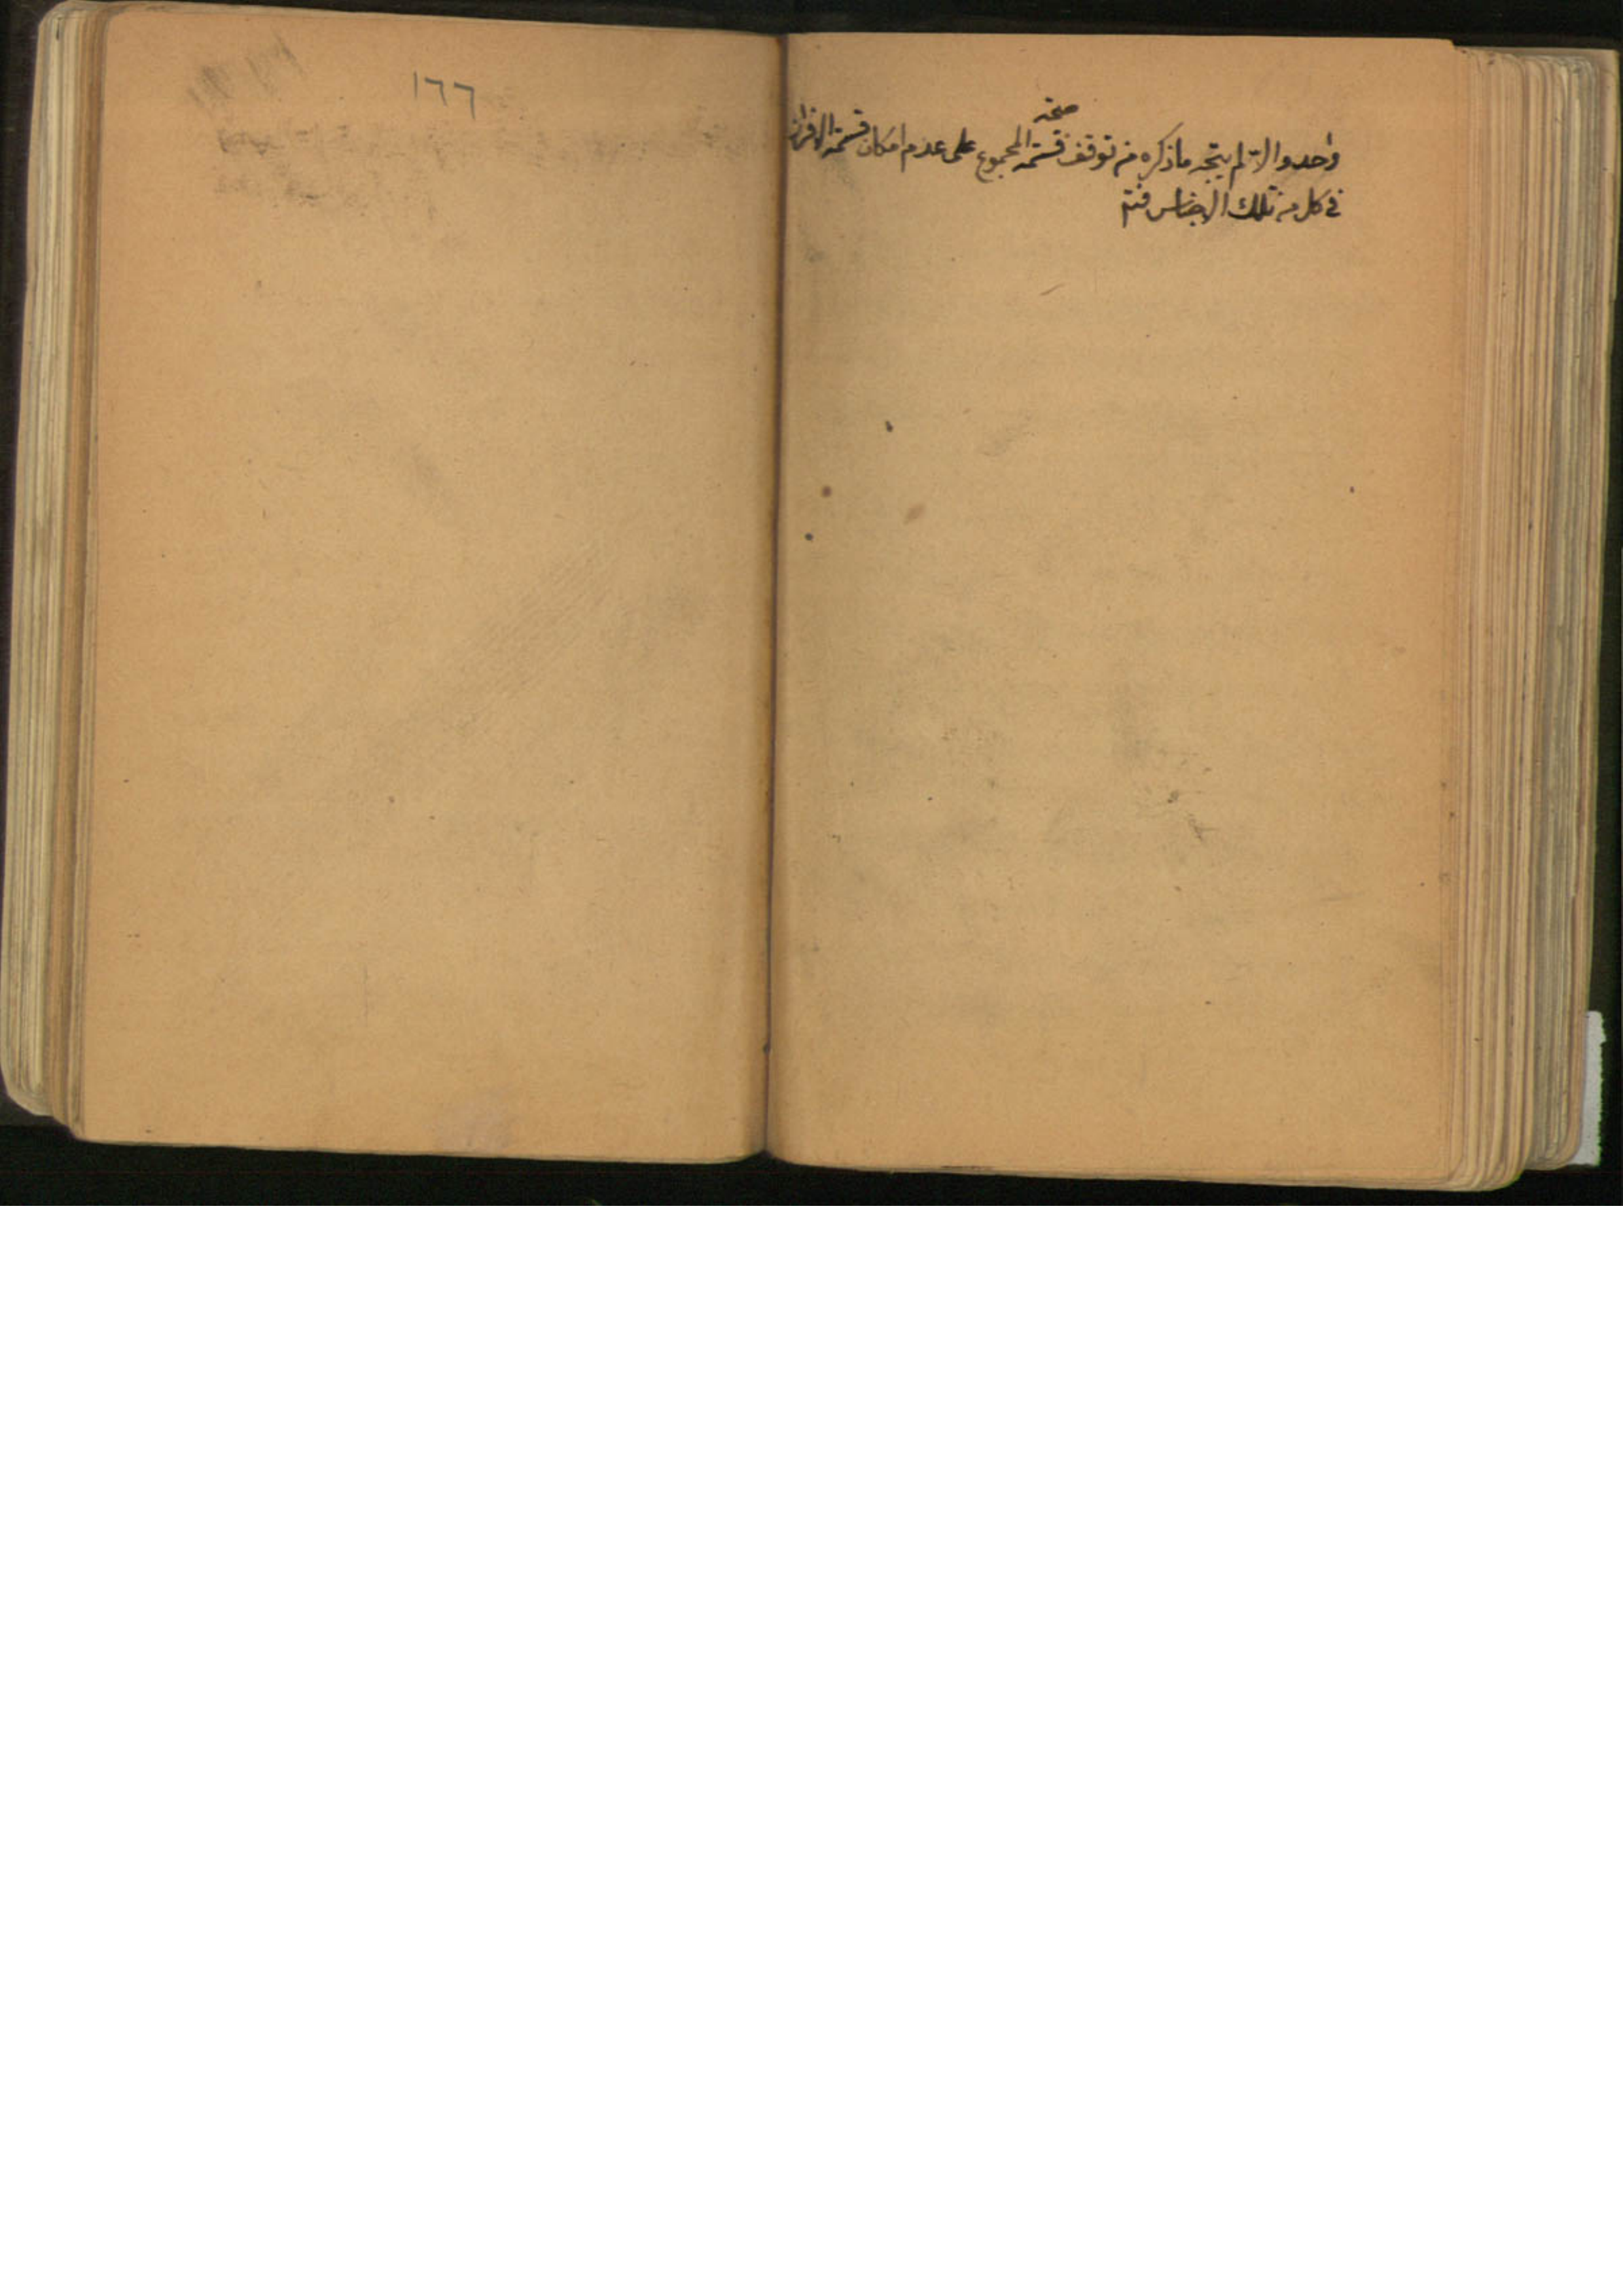 صحة
واحد والّا لم يتجه ما ذكره من توقف قسمة المجموع على عدم امكان قسمة الافراز
في كل من تلك الاجناس
١٦٦